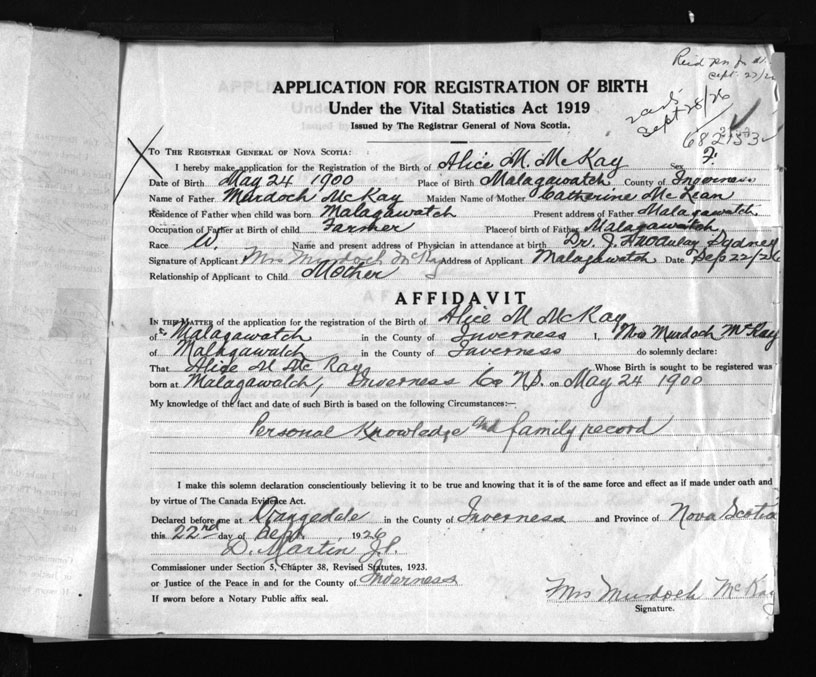 Sept. 27/26
Sept 28/26
APPLICATION FOR REGISTRATION OF BIRTH
Under the Vital Statistics Act 1919
Issued by The Registrar General of Nova Scotia.
TO THE REGISTRAR GENERAL OF NOVA SCOTIA:
I hereby make application for the Registration of the Birth of Alice M. McKay Sex F.
Date of Birth May 24 1900 Place of Birth Malagawatch County of Inverness
Name of Father Murdoch McKay Maiden Name of Mother Catherine McLean
Residence of Father when child was born Malagawatch Present address of Father Malagawatch
Occupation of Father at Birth of child Farmer Place of birth of Father Malagawatch
Race W. Name and present address of Physician in attendance at birth Dr. J. Sydney
Signature of Applicant Mrs Murdoch McKay Address of Applicant Malagawatch Date Sep 22/26
Relationship of Applicant to Child Mother
AFFIDAVIT
IN THE MATTER of the application for the registration of the Birth of Alice M McKay
of Malagawatch in the County of Inverness I, Mrs Murdoch McKay
of Malagawatch in the County of Inverness do solemnly declare:
That Alice M McKay Whose Birth is sought to be registered was
born at Malagawatch, Inverness Co N.S. on May 24 1900
My knowledge of the fact and date of such Birth is based on the following Circumstances:—
Personal Knowledge and family record
I make this solemn declaration conscientiously believing it to be true and knowing that it is of the same force and effect as if made under oath and
by virtue of The Canada Evidence Act.
Declared before me at Orangedale in the County of Inverness and Province of Nova Scotia
this 22nd day of Sept. 1926
D. Martin J.P.
Commissioner under Section 5, Chapter 38, Revised Statutes, 1923.
or Justice of the Peace in and for the County of Inverness
If sworn before a Notary Public affix seal.
Mrs Murdoch McKay
Signature.